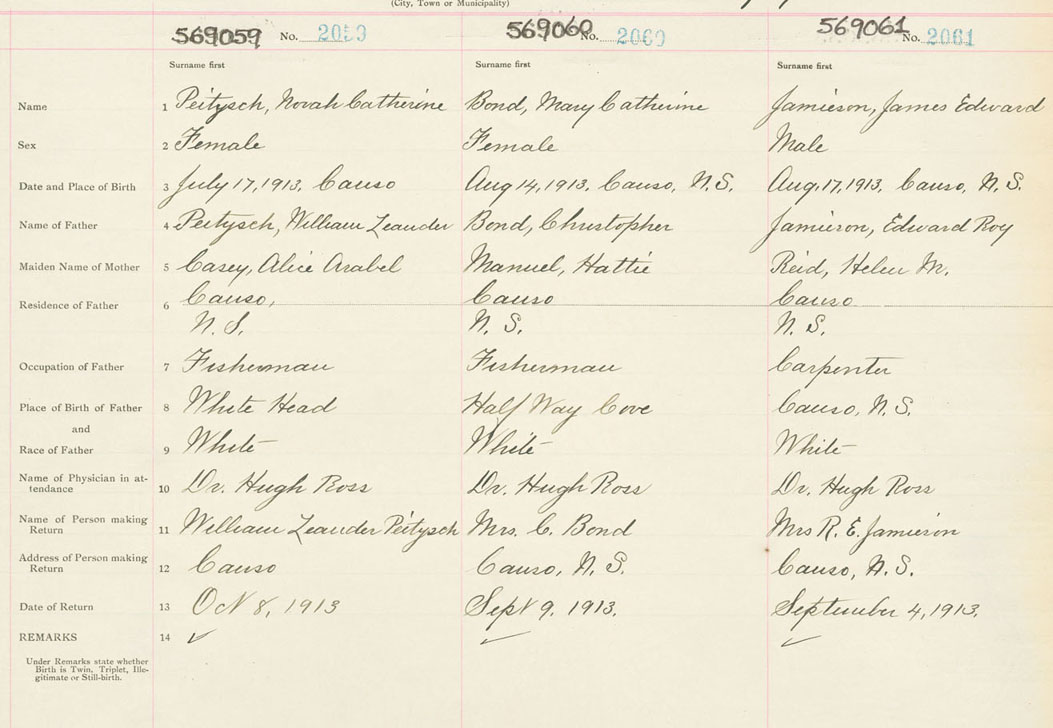 (City, Town or Municipality)
569059 No. 2059 569060 No. 2060 569061 No. 2061
Surname first Surname first Surname first
Name 1 Peitzsch, Norah Catherine Bond, Mary Catherine Jamieson, James Edward
Sex 2 Female Female Male
Date and Place of Birth 3 July 17, 1913. Canso Aug 14, 1913. Canso, N.S. Aug. 17, 1913. Canso, N.S.
Name of Father 4 Peitzsch, William Leander Bond, Christopher Jamieson, Edward Roy
Maiden Name of Mother 5 Casey, Alice Arabel Manuel, Hattie Reid, Helen M.
Residence of Father 6 Canso, Canso Canso
N. S. N. S. N. S.
Occupation of Father 7 Fisherman Fisherman Carpenter
Place of Birth of Father 8 White Head Half Way Cove Canso, N.S.
and
Race of Father 9 White White White
Name of Physician in at-
tendance 10 Dr. Hugh Ross Dr. Hugh Ross Dr. Hugh Ross
Name of Person making
Return 11 William Leander Peitzsch Mrs. C. Bond Mrs R. E. Jamieson
Address of Person making
Return 12 Canso Canso, N.S. Canso, N.S.
Date of Return 13 Oct 8, 1913 Sept 9. 1913. September 4, 1913.
REMARKS 14 ✓ ✓ ✓
Under Remarks state whether
Birth is Twin, Triplet, Ille-
gitimate or Still-birth.